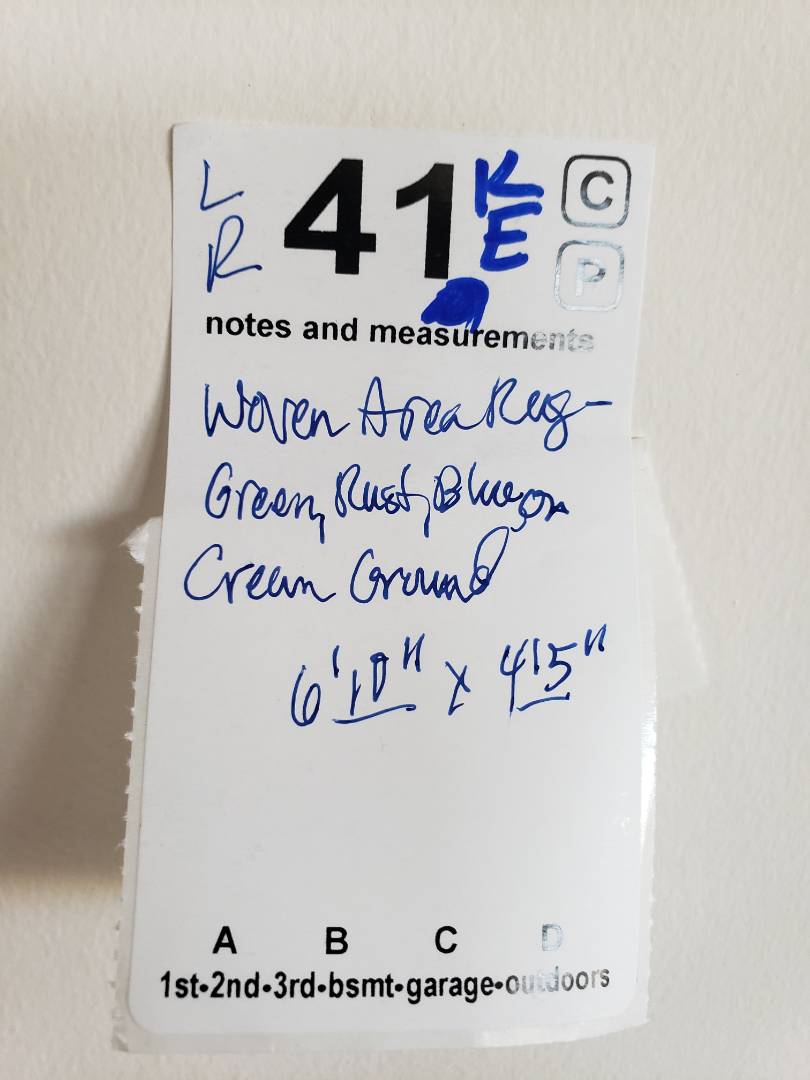 L
R
41
K
E
C
P
notes and measurements
Woven Area Rug-
Green, Rust, Blue, on
Cream Ground
6'10" x 4'5"
A B C D
1st•2nd•3rd•bsmt•garage•outdoors